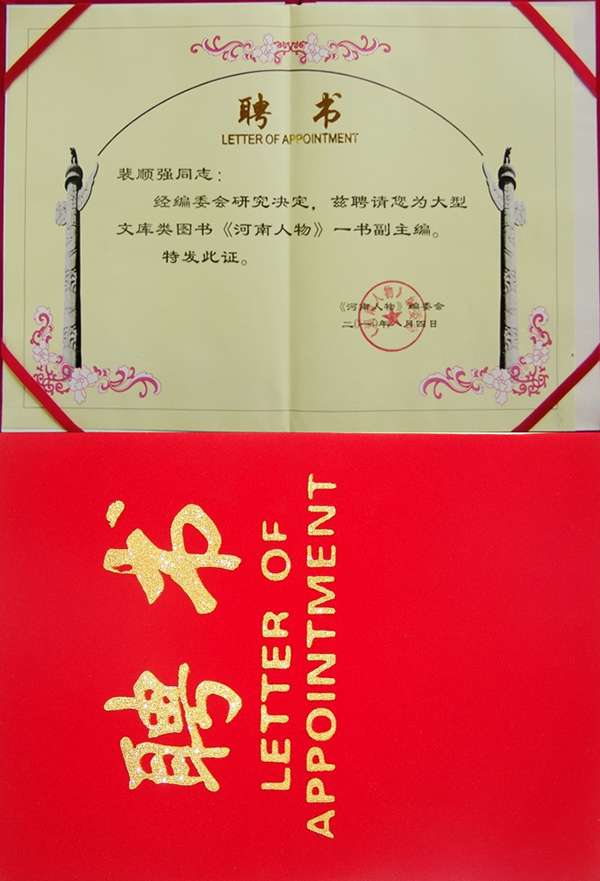 聘书
LETTER OF APPOINTMENT
裴顺强同志：
经编委会研究决定，兹聘请您为大型
文库类图书《河南人物》一书副主编。
特发此证。
《河南人物》编委会
月四日
聘书
LETTER OF
APPOINTMENT